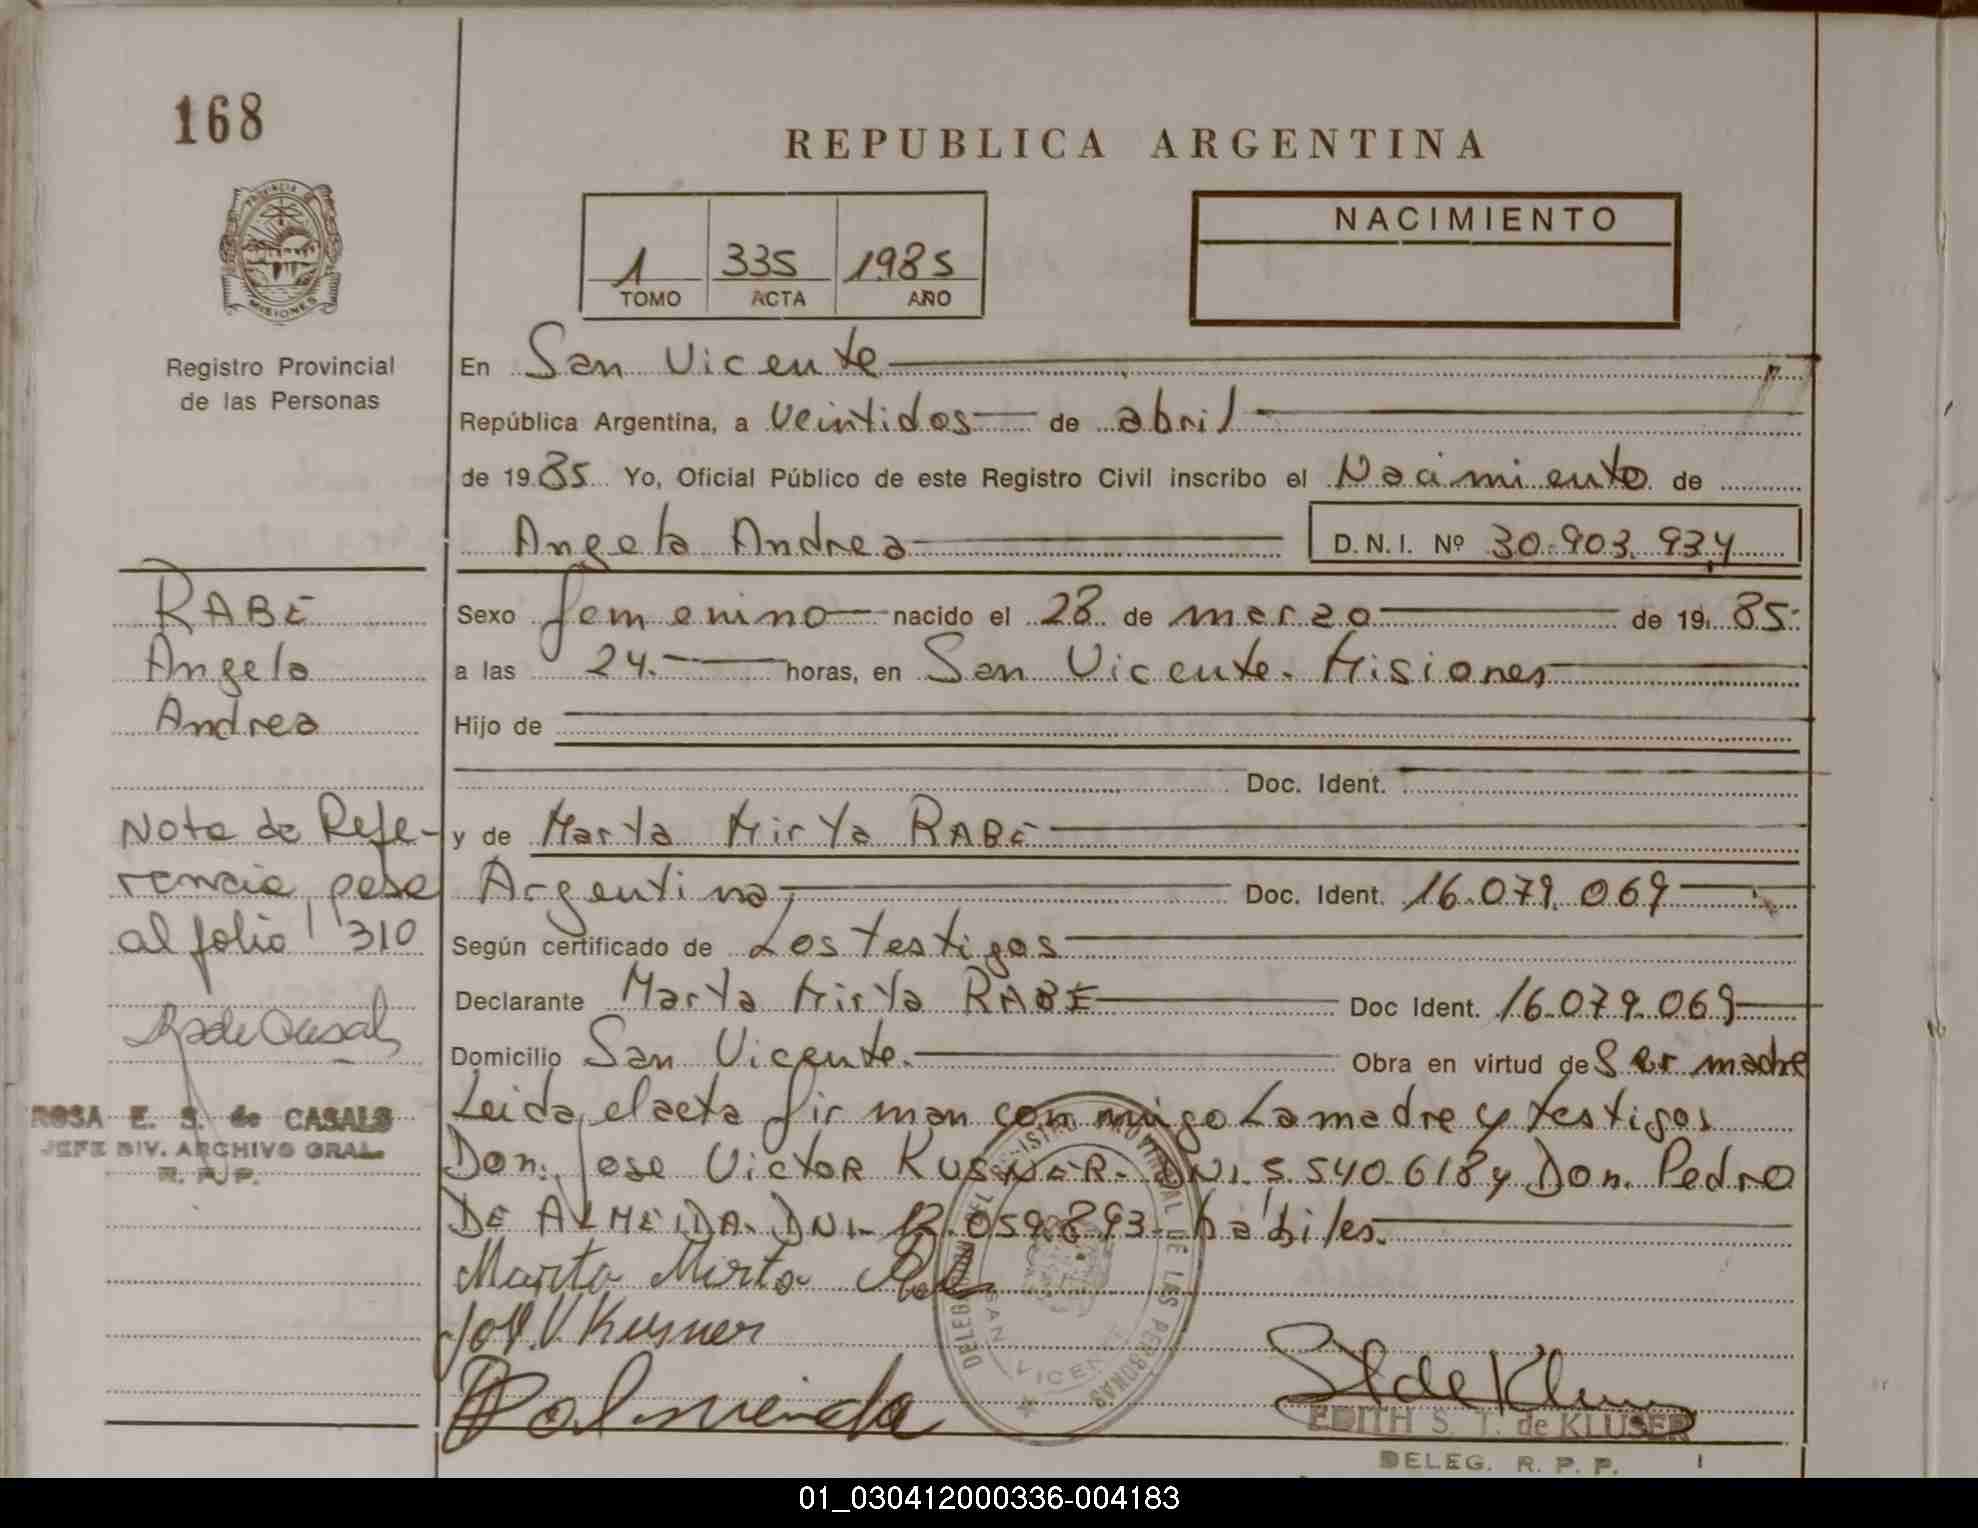 168
REPUBLICA ARGENTINA
PROVINCIA
MISIONES
Registro Provincial
de las Personas
1 335 1985
TOMO ACTA AÑO
NACIMIENTO
En San Vicente
República Argentina, a veintidos de abril
de 19 85 Yo, Oficial Público de este Registro Civil inscribo el Nacimiento de
Angela Andrea D.N.I. Nº 30.903.934
RABE
Angela
Andrea
Sexo femenino nacido el 28 de marzo de 19 85
a las 24. horas, en San Vicente. Misiones
Hijo de
Doc. Ident.
y de Marta Mirta RABE
Argentina, Doc. Ident. 16.079.069
Según certificado de Los testigos
Declarante Marta Mirta RABE Doc Ident. 16.079.069
Domicilio San Vicente. Obra en virtud de Ser madre
Leida el acta firman conmigo La madre y testigos
Don: Jose Victor KUSNER- DNI. 5.540.618 y Don. Pedro
DE ALMEIDA. DNI- 12.059.893- hábiles.
Nota de Refe-
rencia pasa
al folio 310
ROSA E. S. de CASALS
JEFE DIV. ARCHIVO GRAL.
R. P. P.
Marta Mirta Rabe
José V. Kusner
P. Dalmeida
DELEGACION DEL REGISTRO PROVINCIAL DE LAS PERSONAS
SAN VICENTE
EDITH S. T. de KLUSER
DELEG. R. P. P.
01_030412000336-004183